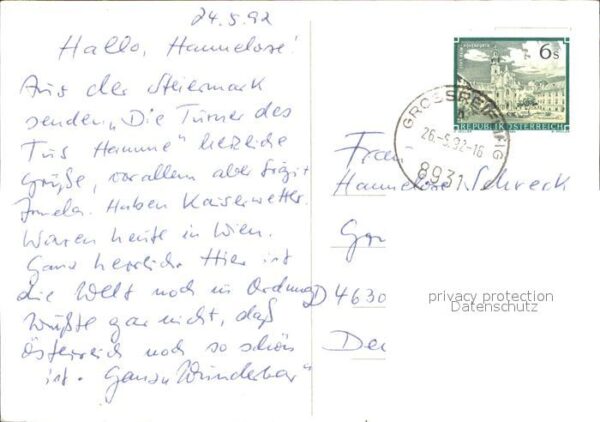 24.5.92
Hallo, Hannelore!
Aus der Steiermark
senden „Die Turner des
Tus Hamme" herzliche
Grüße, vor allem aber
Haben Kaiserwetter.
Waren heute in Wien.
Ganz herrlich. Hier ist
die Welt noch in Ordnung
Wußte gar nicht, daß
Österreich noch so schön
ist. Ganz „Wunderbar"
6s
REPUBLIK ÖSTERREICH
26.-5.92-16
8931
Frau
Hannelore Schreck
D 4630
privacy protection
Datenschutz